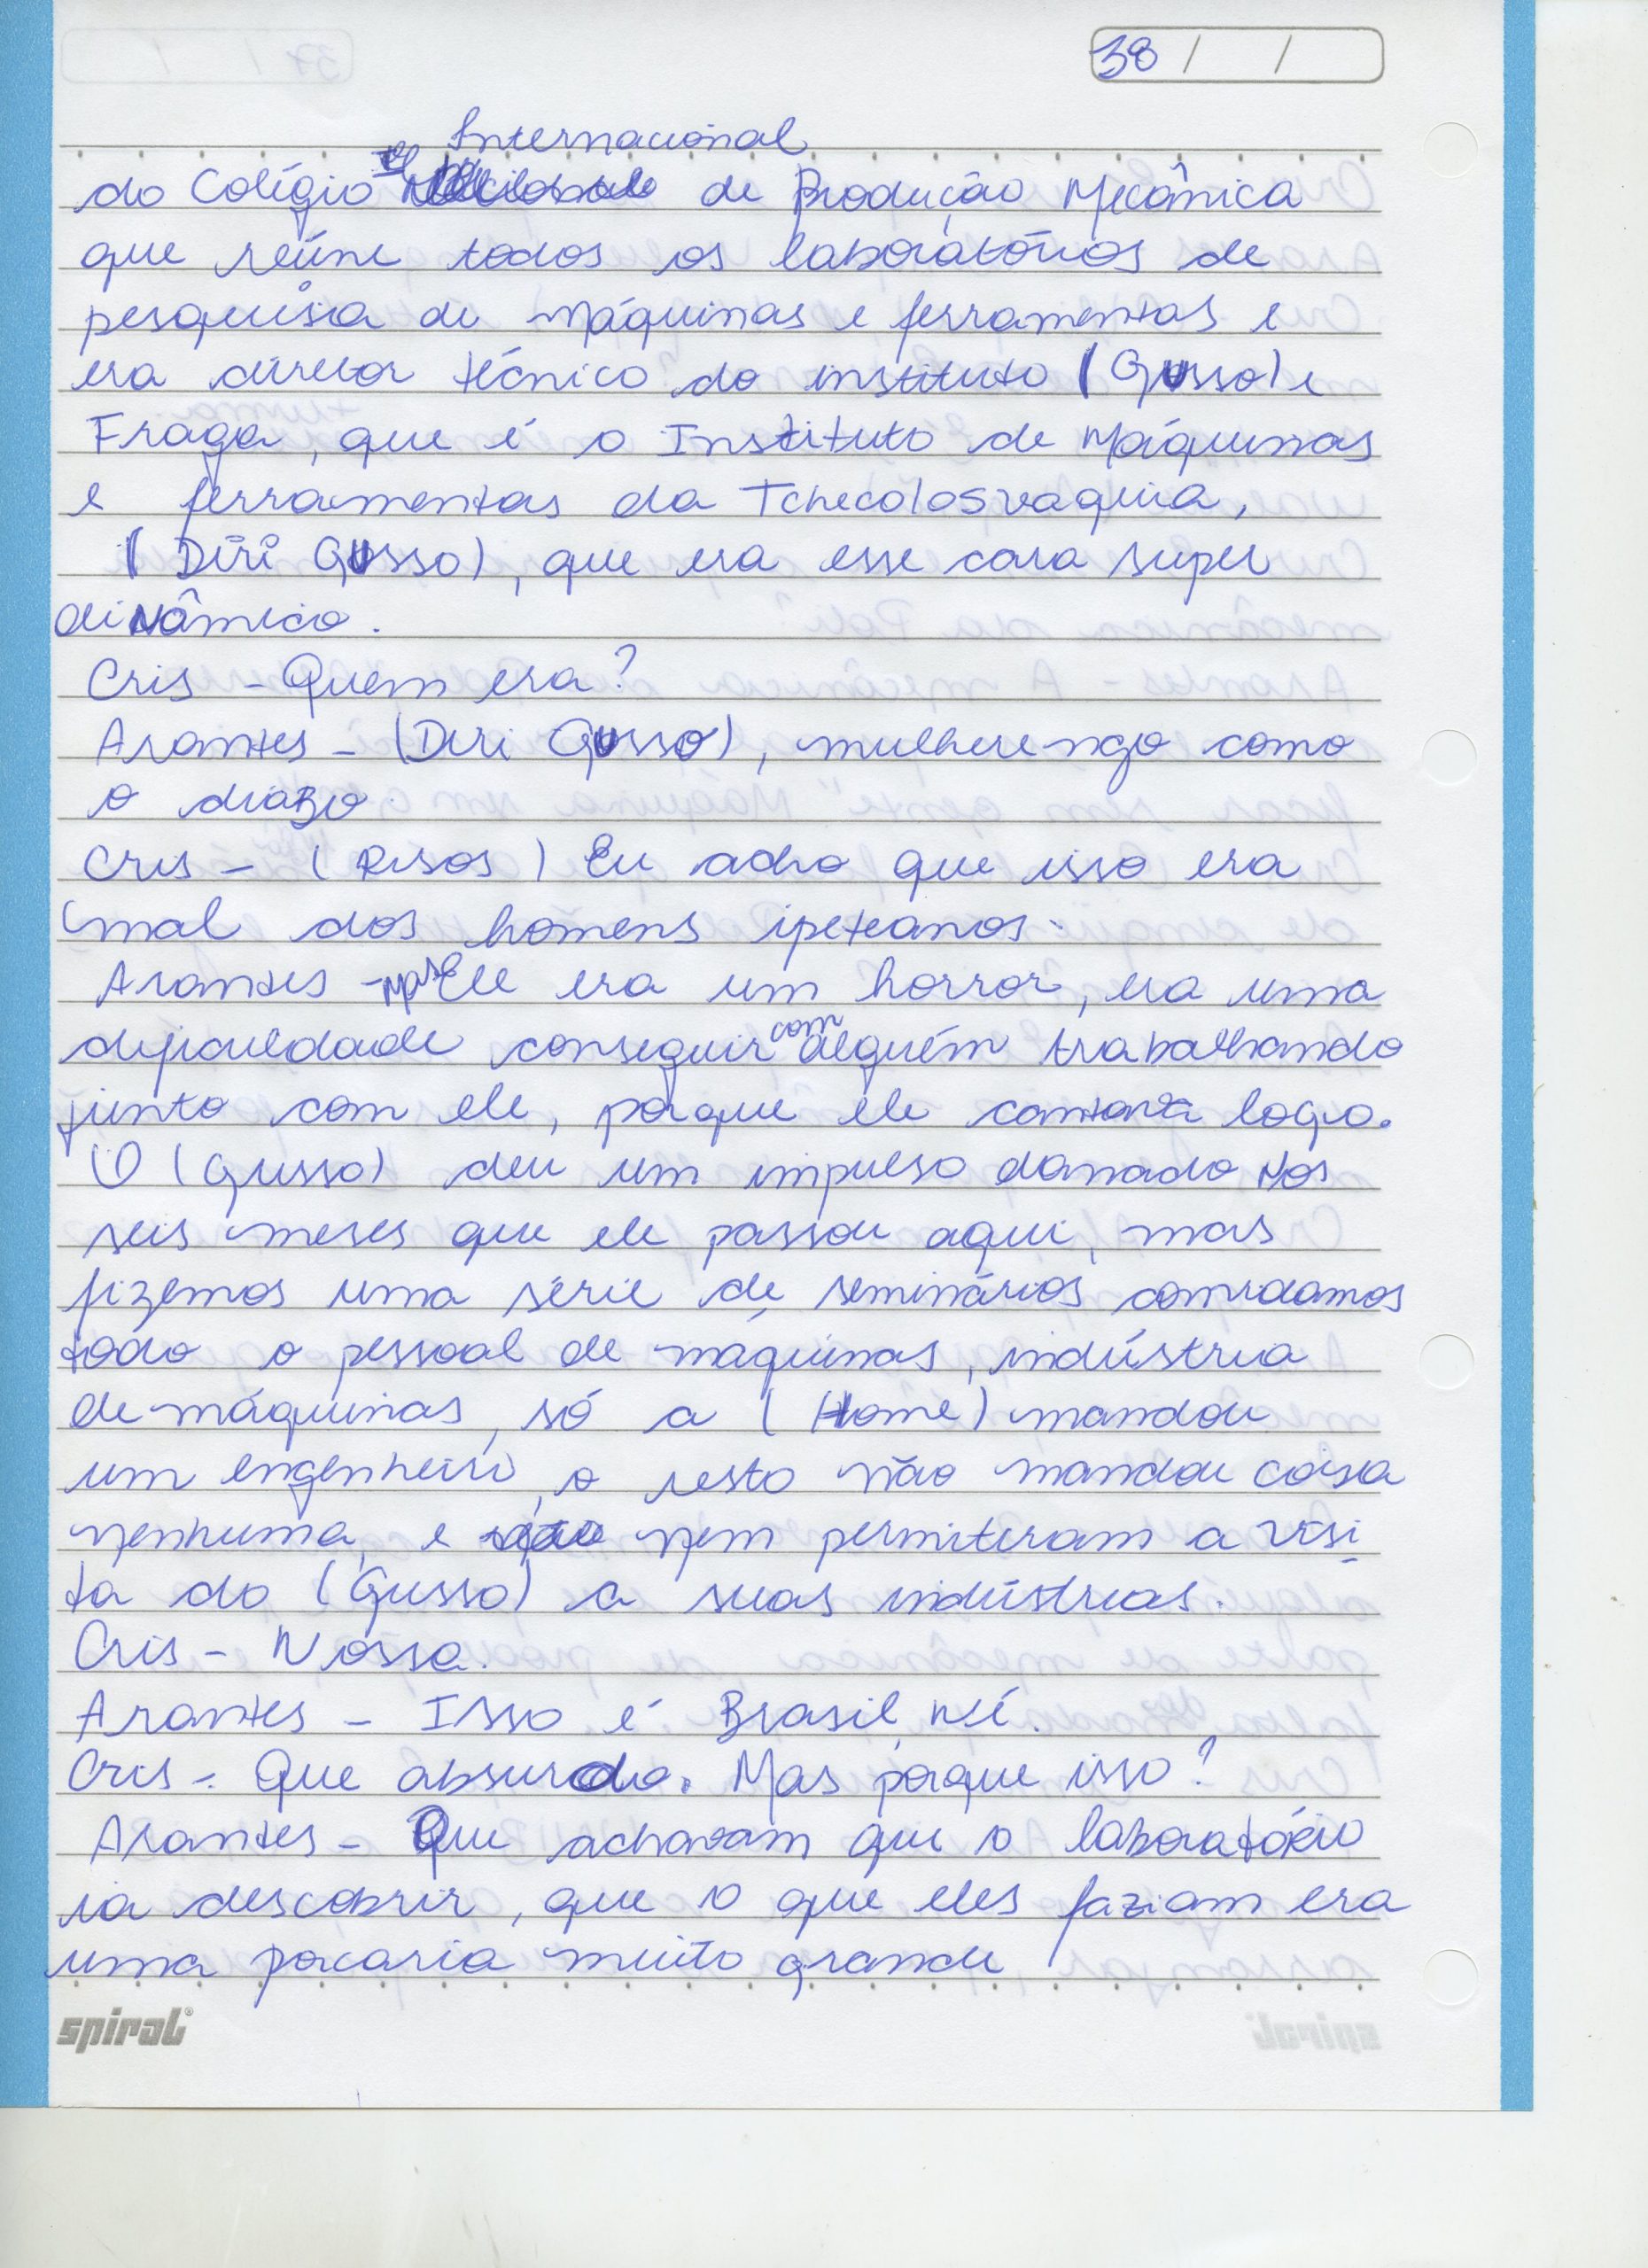 38 / /
Internacional
do Colégio de Produção Mecânica
que reúne todos os laboratórios de
pesquisa de máquinas e ferramentas e
era diretor técnico do instituto (Gusso) e
Fraga, que é o Instituto de Máquinas
e ferramentas da Tchecolosvaquia,
(Diri Gusso), que era esse cara super
diNâmico.
Cris - Quem era?
Arantes - (Diri Gusso), mulherengo como
o diaBo.
Cris - (Risos) Eu acho que isso era
mal dos homens ipeteanos.
Arantes - Mas Ele era um horror, era uma
dificuldade conseguir com alguém trabalhando
junto com ele, porque ele cantava logo.
O (Gusso) deu um impulso danado Nos
seis meses que ele passou aqui, mas
fizemos uma série de seminários, convidamos
todo o pessoal de máquinas, indústria
de máquinas, só a (Home) mandou
um engenheiro, o resto não mandou coisa
nenhuma, e nem permiteram a visi
ta do (Gusso) a suas indústrias.
Cris - Nossa.
Arantes - Isso é Brasil, né.
Cris - Que absurdo. Mas porque isso?
Arantes - Que achavam que o laboratório
ia descobrir, que o que eles faziam era
uma porcaria muito grande
spiral®